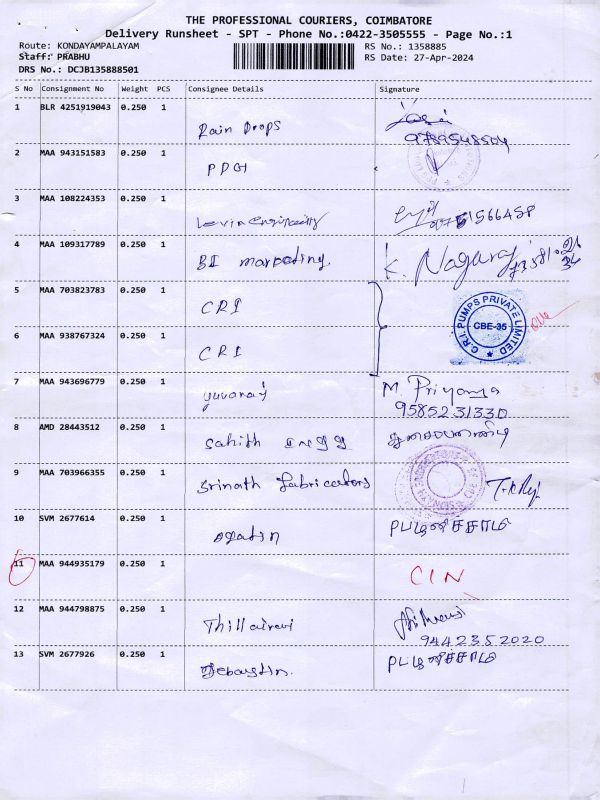 THE PROFESSIONAL COURIERS, COIMBATORE
Delivery Runsheet - SPT - Phone No.:0422-3505555 - Page No.:1
Route: KONDAYAMPALAYAM
RS No.: 1358885
Staff: PRABHU
RS Date: 27-Apr-2024
DRS No.: DCJB135888501
S No Consignment No Weight PCS Consignee Details Signature
1 BLR 4251919043 0.250 1 Rain Drops
9789548504
2 MAA 943151583 0.250 1 PDGI
3 MAA 108224353 0.250 1
4 MAA 109317789 0.250 1 BI marketing. K. Nagaraj
5 MAA 703823783 0.250 1 CRI
C.R.I. PUMPS PRIVATE LIMITED
CBE-35
6 MAA 938767324 0.250 1 CRI
7 MAA 943696779 0.250 1 yuvaraj M Priyanga
9585231330
8 AMD 28443512 0.250 1 Sahith
9 MAA 703966355 0.250 1 Srinath fabricators
10 SVM 2677614 0.250 1 பழனிச்சாமி
11 MAA 944935179 0.250 1 CIN
12 MAA 944798875 0.250 1 Thillairavi
9442352020
13 SVM 2677926 0.250 1 Sebastin. பழனிச்சாமி